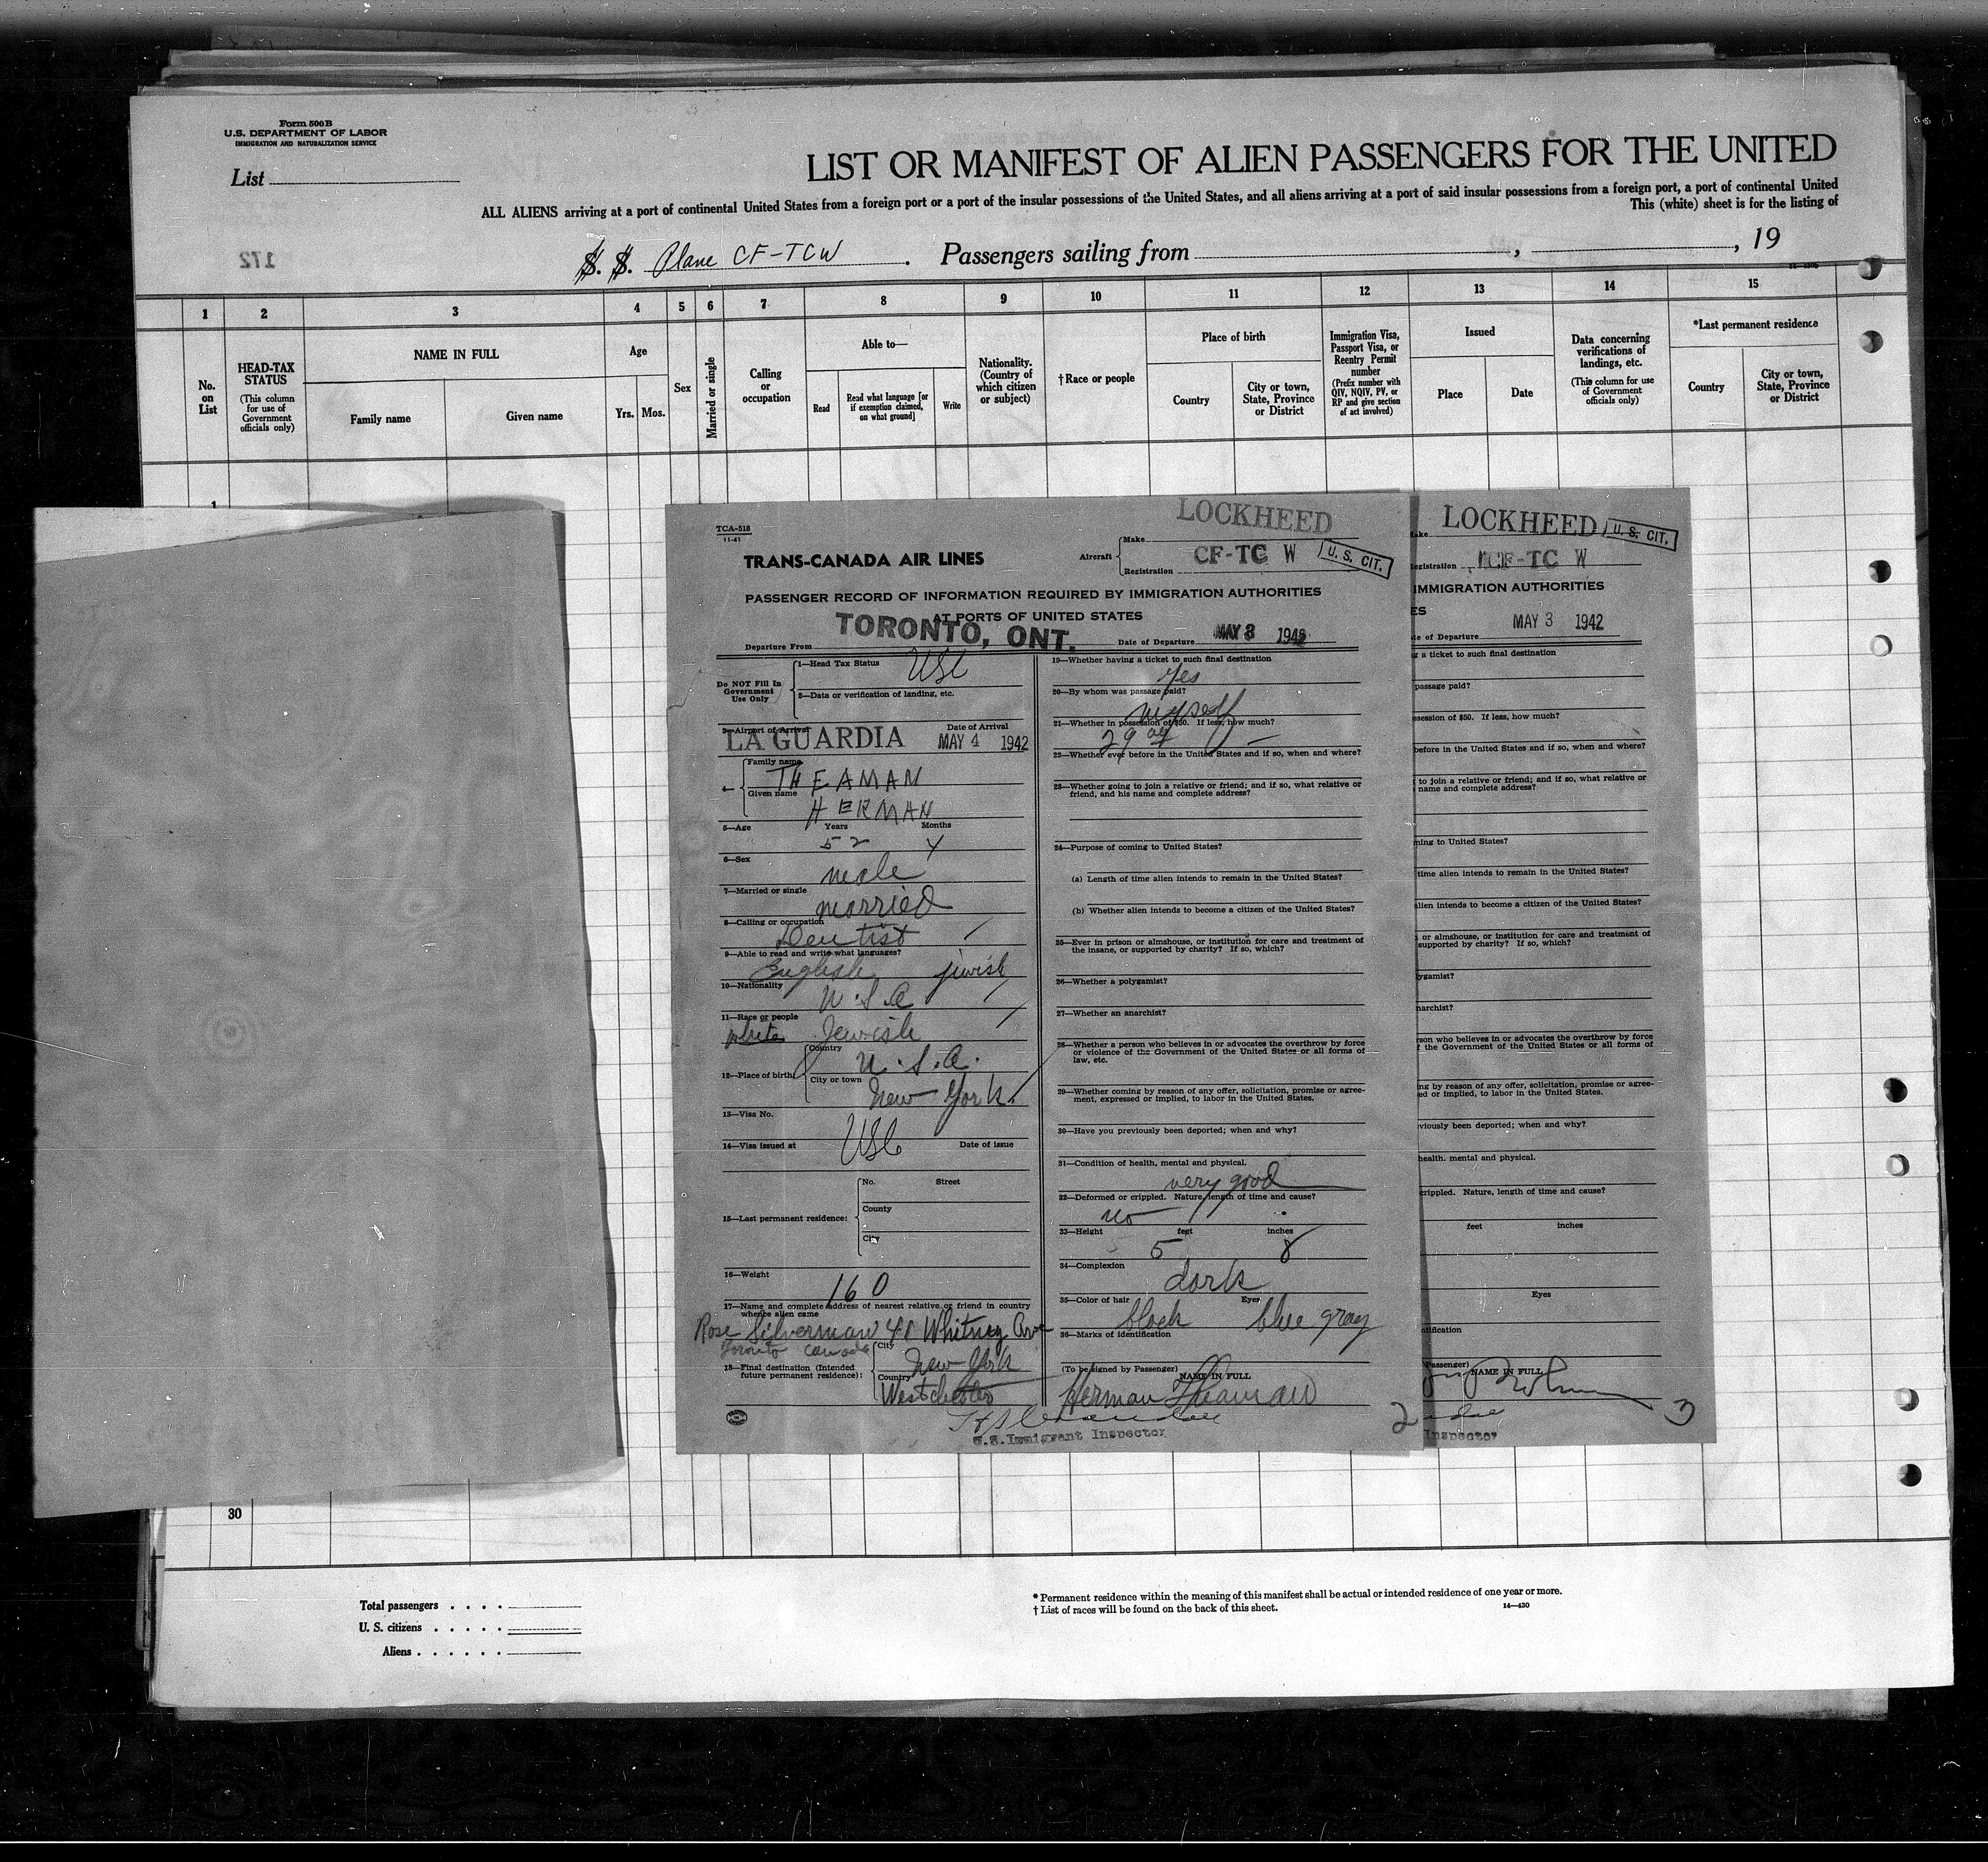 Form 500B
U.S. DEPARTMENT OF LABOR
IMMIGRATION AND NATURALIZATION SERVICE
List
LIST OR MANIFEST OF ALIEN PASSENGERS FOR THE UNITED
ALL ALIENS arriving at a port of continental United States from a foreign port or a port of the insular possessions of the United States, and all aliens arriving at a port of said insular possessions from a foreign port, a port of continental United
This (white) sheet is for the listing of
172
S. S. Plane CF-TCW . Passengers sailing from , , 19
1 2 3 4 5 6 7 8 9 10 11 12 13 14 15
No. on List
HEAD-TAX STATUS (This column for use of Government officials only)
NAME IN FULL
Family name Given name
Age
Yrs. Mos.
Sex
Married or single
Calling or occupation
Able to—
Read
Read what language [or if exemption claimed, on what ground]
Write
Nationality. (Country of which citizen or subject)
†Race or people
Place of birth
Country
City or town, State, Province or District
Immigration Visa, Passport Visa, or Reentry Permit number (Prefix number with QIV, NQIV, PV, or RP and give section of act involved)
Issued
Place Date
Data concerning verifications of landings, etc. (This column for use of Government officials only)
*Last permanent residence
Country
City or town, State, Province or District
1
TCA-518
11-41
TRANS-CANADA AIR LINES
LOCKHEED
Aircraft Make
Registration CF-TC W
U. S. CIT.
PASSENGER RECORD OF INFORMATION REQUIRED BY IMMIGRATION AUTHORITIES
AT PORTS OF UNITED STATES
Departure From TORONTO, ONT. Date of Departure MAY 3 1942
Do NOT Fill In Government Use Only
1—Head Tax Status USC
2—Data or verification of landing, etc.
3—Airport of Arrival Date of Arrival
LA GUARDIA MAY 4 1942
Family name THEAMAN
Given name HERMAN
5—Age Years Months
52 4
6—Sex
male
7—Married or single
married
8—Calling or occupation
Dentist
9—Able to read and write what languages?
English jewish
10—Nationality
U.S.A
11—Race or people
white Jewish
12—Place of birth
Country U.S.A.
City or town New York
13—Visa No.
14—Visa issued at USC Date of issue
15—Last permanent residence:
No. Street
County
City
16—Weight
160
17—Name and complete address of nearest relative or friend in country whence alien came
Rose Silverman 41 Whitney Ave
Toronto Canada
18—Final destination (Intended future permanent residence):
City New York
Country Westchester
19—Whether having a ticket to such final destination
Yes
20—By whom was passage paid?
myself
21—Whether in possession of $50. If less, how much?
29
22—Whether ever before in the United States and if so, when and where?
23—Whether going to join a relative or friend; and if so, what relative or friend, and his name and complete address?
24—Purpose of coming to United States?
(a) Length of time alien intends to remain in the United States?
(b) Whether alien intends to become a citizen of the United States?
25—Ever in prison or almshouse, or institution for care and treatment of the insane, or supported by charity? If so, which?
26—Whether a polygamist?
27—Whether an anarchist?
28—Whether a person who believes in or advocates the overthrow by force or violence of the Government of the United States or all forms of law, etc.
29—Whether coming by reason of any offer, solicitation, promise or agreement, expressed or implied, to labor in the United States.
30—Have you previously been deported; when and why?
31—Condition of health, mental and physical.
very good
32—Deformed or crippled. Nature, length of time and cause?
no
33—Height feet inches
5 8
34—Complexion
dark
35—Color of hair Eyes
black blue gray
36—Marks of identification
(To be signed by Passenger) NAME IN FULL
Herman Theaman
U.S. Immigrant Inspector
2
LOCKHEED
U. S. CIT.
ake
egistration CF-TC W
IMMIGRATION AUTHORITIES
ES
te of Departure MAY 3 1942
g a ticket to such final destination
passage paid?
session of $50. If less, how much?
before in the United States and if so, when and where?
to join a relative or friend; and if so, what relative or
name and complete address?
ming to United States?
time alien intends to remain in the United States?
alien intends to become a citizen of the United States?
or almshouse, or institution for care and treatment of
supported by charity? If so, which?
lygamist?
narchist?
son who believes in or advocates the overthrow by force
f the Government of the United States or all forms of
ng by reason of any offer, solicitation, promise or agree-
ed or implied, to labor in the United States.
viously been deported; when and why?
health. mental and physical.
crippled. Nature, length of time and cause?
feet inches
Eyes
ntification
Passenger) NAME IN FULL
Inspector
3
30
Total passengers . . . .
U. S. citizens . . . . .
Aliens . . . . . .
* Permanent residence within the meaning of this manifest shall be actual or intended residence of one year or more.
† List of races will be found on the back of this sheet.
14—430